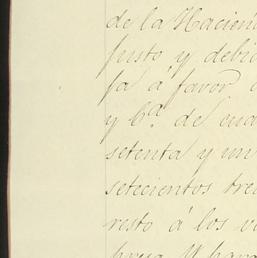 de la Hacien
justo y debi
fa a favor
y Cª. de cua
setenta y un
setecientos tre
resto á los v